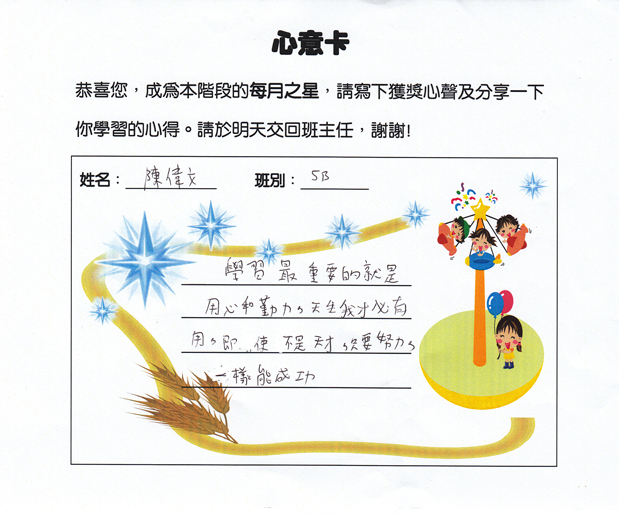 心意卡
恭喜您，成為本階段的每月之星，請寫下獲獎心聲及分享一下
你學習的心得。請於明天交回班主任，謝謝!
姓名： 陳偉文 班別： 5B
學習最重要的就是
用心和勤力，天生我才必有
用，即使不是天才，只要努力，
一樣能成功